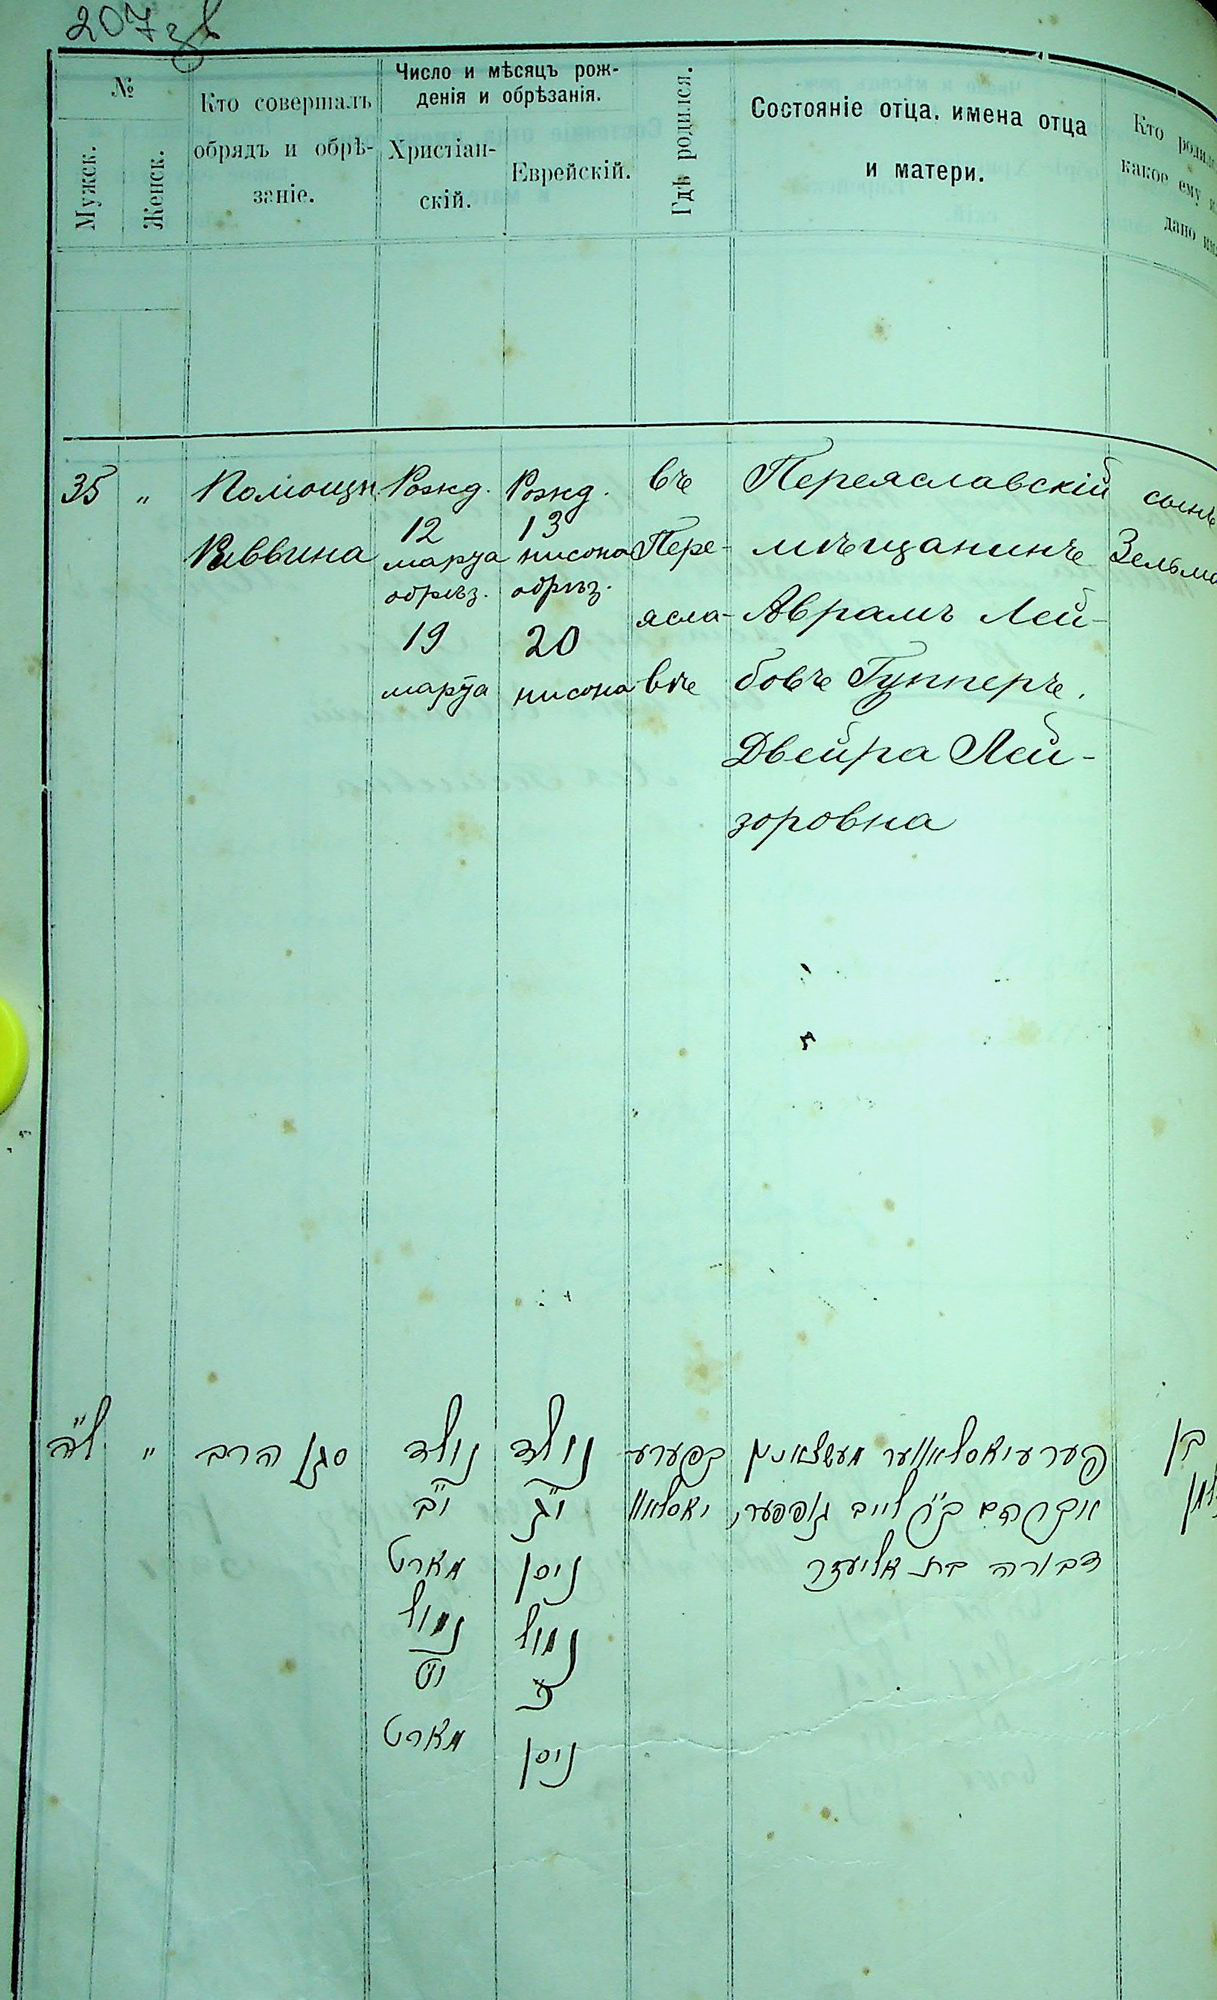 207 зв
№
Мужск.
Женск.
Кто совершалъ
обрядъ и обрѣ-
заніе.
Число и мѣсяцъ рож-
денія и обрѣзанія.
Христіан-
скій.
Еврейскій.
Гдѣ родился.
Состояніе отца, имена отца
и матери.
Кто
какое ему
дано
35 "
Помощн
Раввина
Рожд.
12
марта
обрѣз.
19
марта
Рожд.
13
нисона
обрѣз.
20
нисона
въ
Пере-
ясла-
вѣ
Переяславскій
мѣщанинъ
Аврамъ Лей-
бовъ Гупперъ.
Двейра Лей-
зоровна
сынъ
ל"ה "
סגן הרב
נולד
י"ב
מארט
נמול
י"ט
מארט
נולד
י"ג
ניסן
נמול
כ'
ניסן
בפערע
יאסלאוו
פערעיאסלאווער מעשצאנין
אברהם ב"ר לייב גופפער,
דבורה בת אליעזר
בן